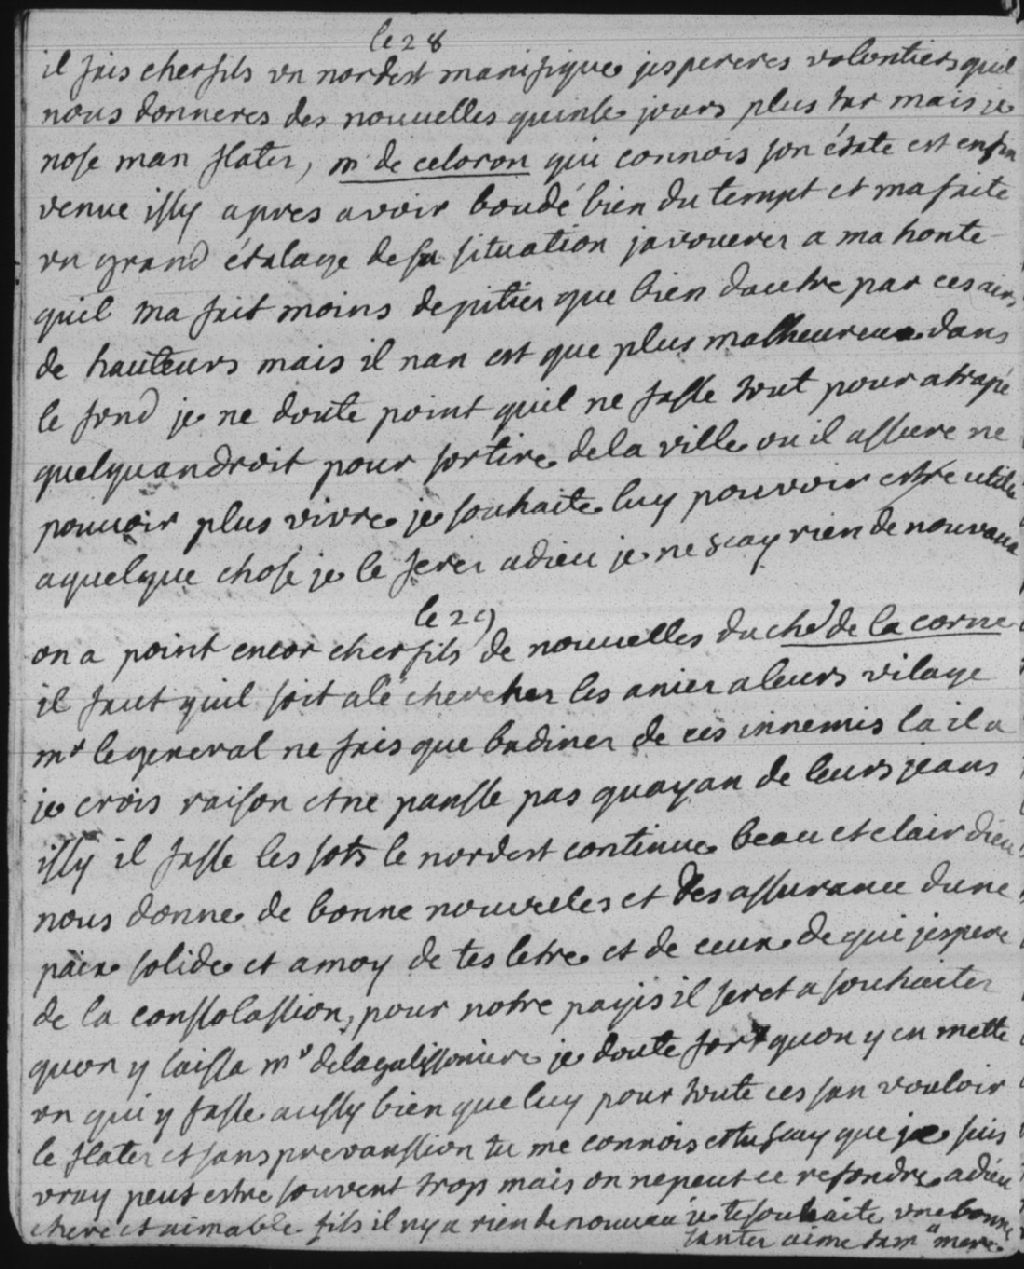 le 28
il fais cher fils un nordest manifique jespereres volontiers quil
nous donneres des nouvelles quinse jours plus tar mais je
nose man flater, mr de celoron qui connois son état est enfin
venue issy apres avoir boudé bien du tempt et ma faite
un grand étalage de sa situation javouerer a ma honte
quil ma fait moins de pitier que bien dautre par ces airs
de hauteurs mais il nan est que plus malheureux dans
le fond je ne doute point quil ne fasse tout pour atrapé
quelquandroit pour sortire de la ville ou il assure ne
pouvoir plus vivre je souhaite luy pouvoir estre utile
a quelque chose je le ferer adieu je ne scay rien de nouveau
le 29
on a point encor cher fils de nouvelles du che de la corne
il faut quil soit alé chercher les anier a leurs vilage
mr le general ne fais que badiner de ces innemis la il a
je crois raison et ne pansse pas quayan de leurs jeans
issy il fasse les sots le nordest continue beau et clair dieu
nous donne de bonne nouveles et des assurance dune
paix solide et a moy de tes letre et de ceux de qui jespere
de la conssolassion, pour notre payis il seret a souhaiter
quon y laissa mr delagalissoniere je doute fort quon y en mette
un qui y fasse aussy bien que luy pour toute ces san vouloir
le flater et sans prevanssion tu me connois et tu scay que je suis
vray peut estre souvent trop mais on ne peut ce refondre adieu
chere et aimable fils il ny a rien de nouveau je te souhaite une bonne
santer aime ta mn mere